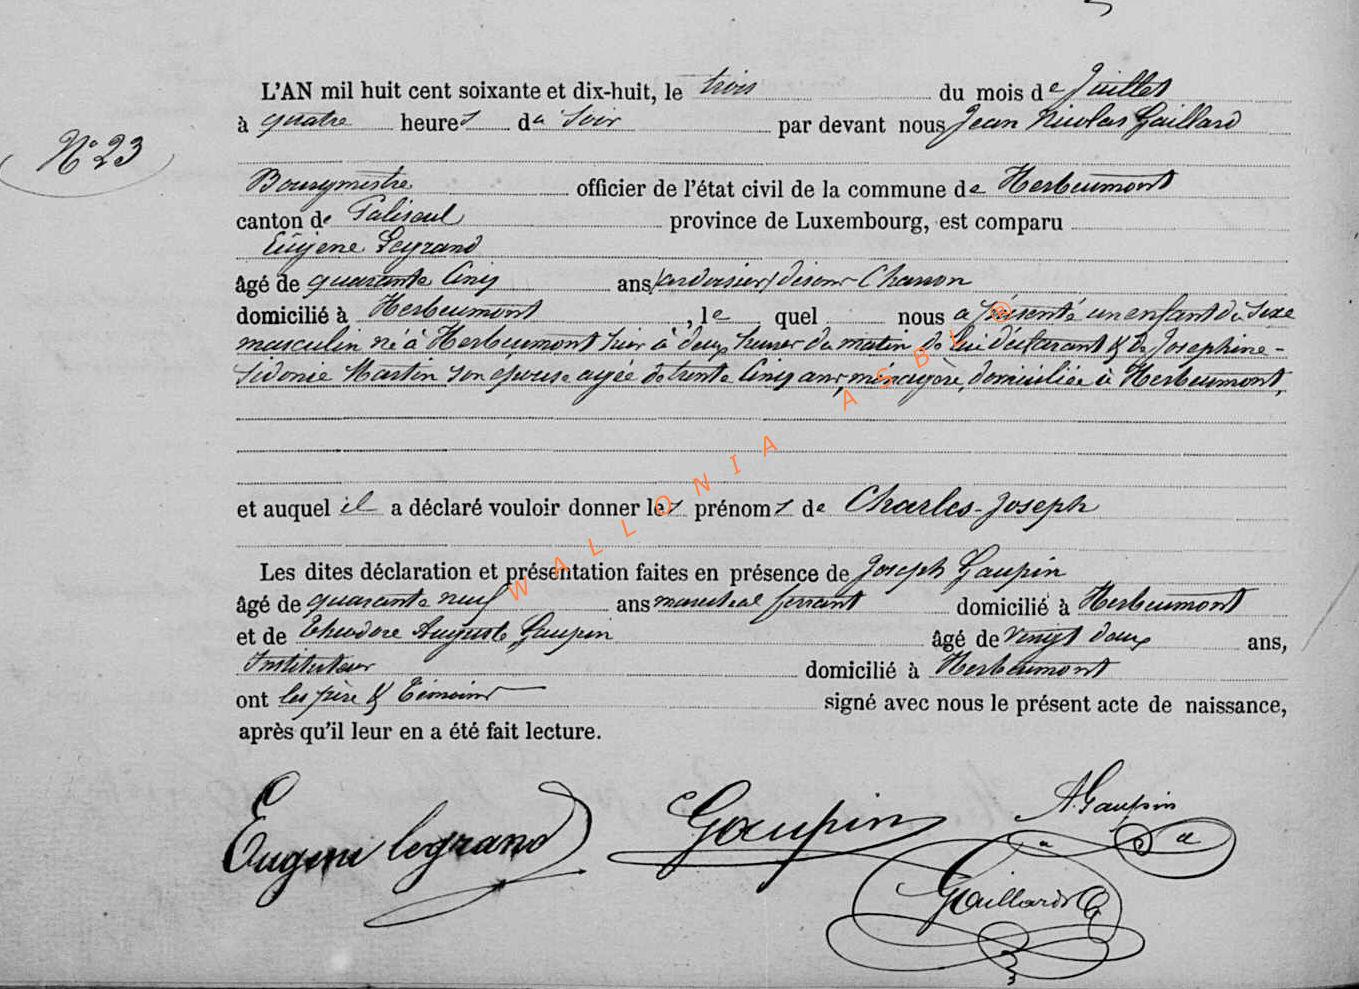 N° 23
L'AN mil huit cent soixante et dix-huit, le trois du mois de Juillet
à quatre heures du Soir par devant nous Jean Nicolas Gaillard
Bourgmestre officier de l'état civil de la commune de Herbeumont
canton de Paliseul province de Luxembourg, est comparu
Eugène Legrand
âgé de quarante Cinq ans
domicilié à Herbeumont, le quel nous a présenté un enfant du Sexe
masculin né à Herbeumont hier à deux heures du matin de lui déclarant & de Josephine-
Sidonie Martin son epouse agée de trente Cinq ans, ménagère, domiciliée à Herbeumont,
et auquel il a déclaré vouloir donner les prénoms de Charles-Joseph
Les dites déclaration et présentation faites en présence de Joseph Gaupin
âgé de quarante neuf ans marechal ferrant domicilié à Herbeumont
et de Théodore Auguste Gaupin âgé de vingt deux ans,
Instituteur domicilié à Herbeumont
ont les père & Témoins signé avec nous le présent acte de naissance,
après qu'il leur en a été fait lecture.
A. Gaupin
Eugene legrand Gaupin
Gaillard
WALLONIA ASBL ®